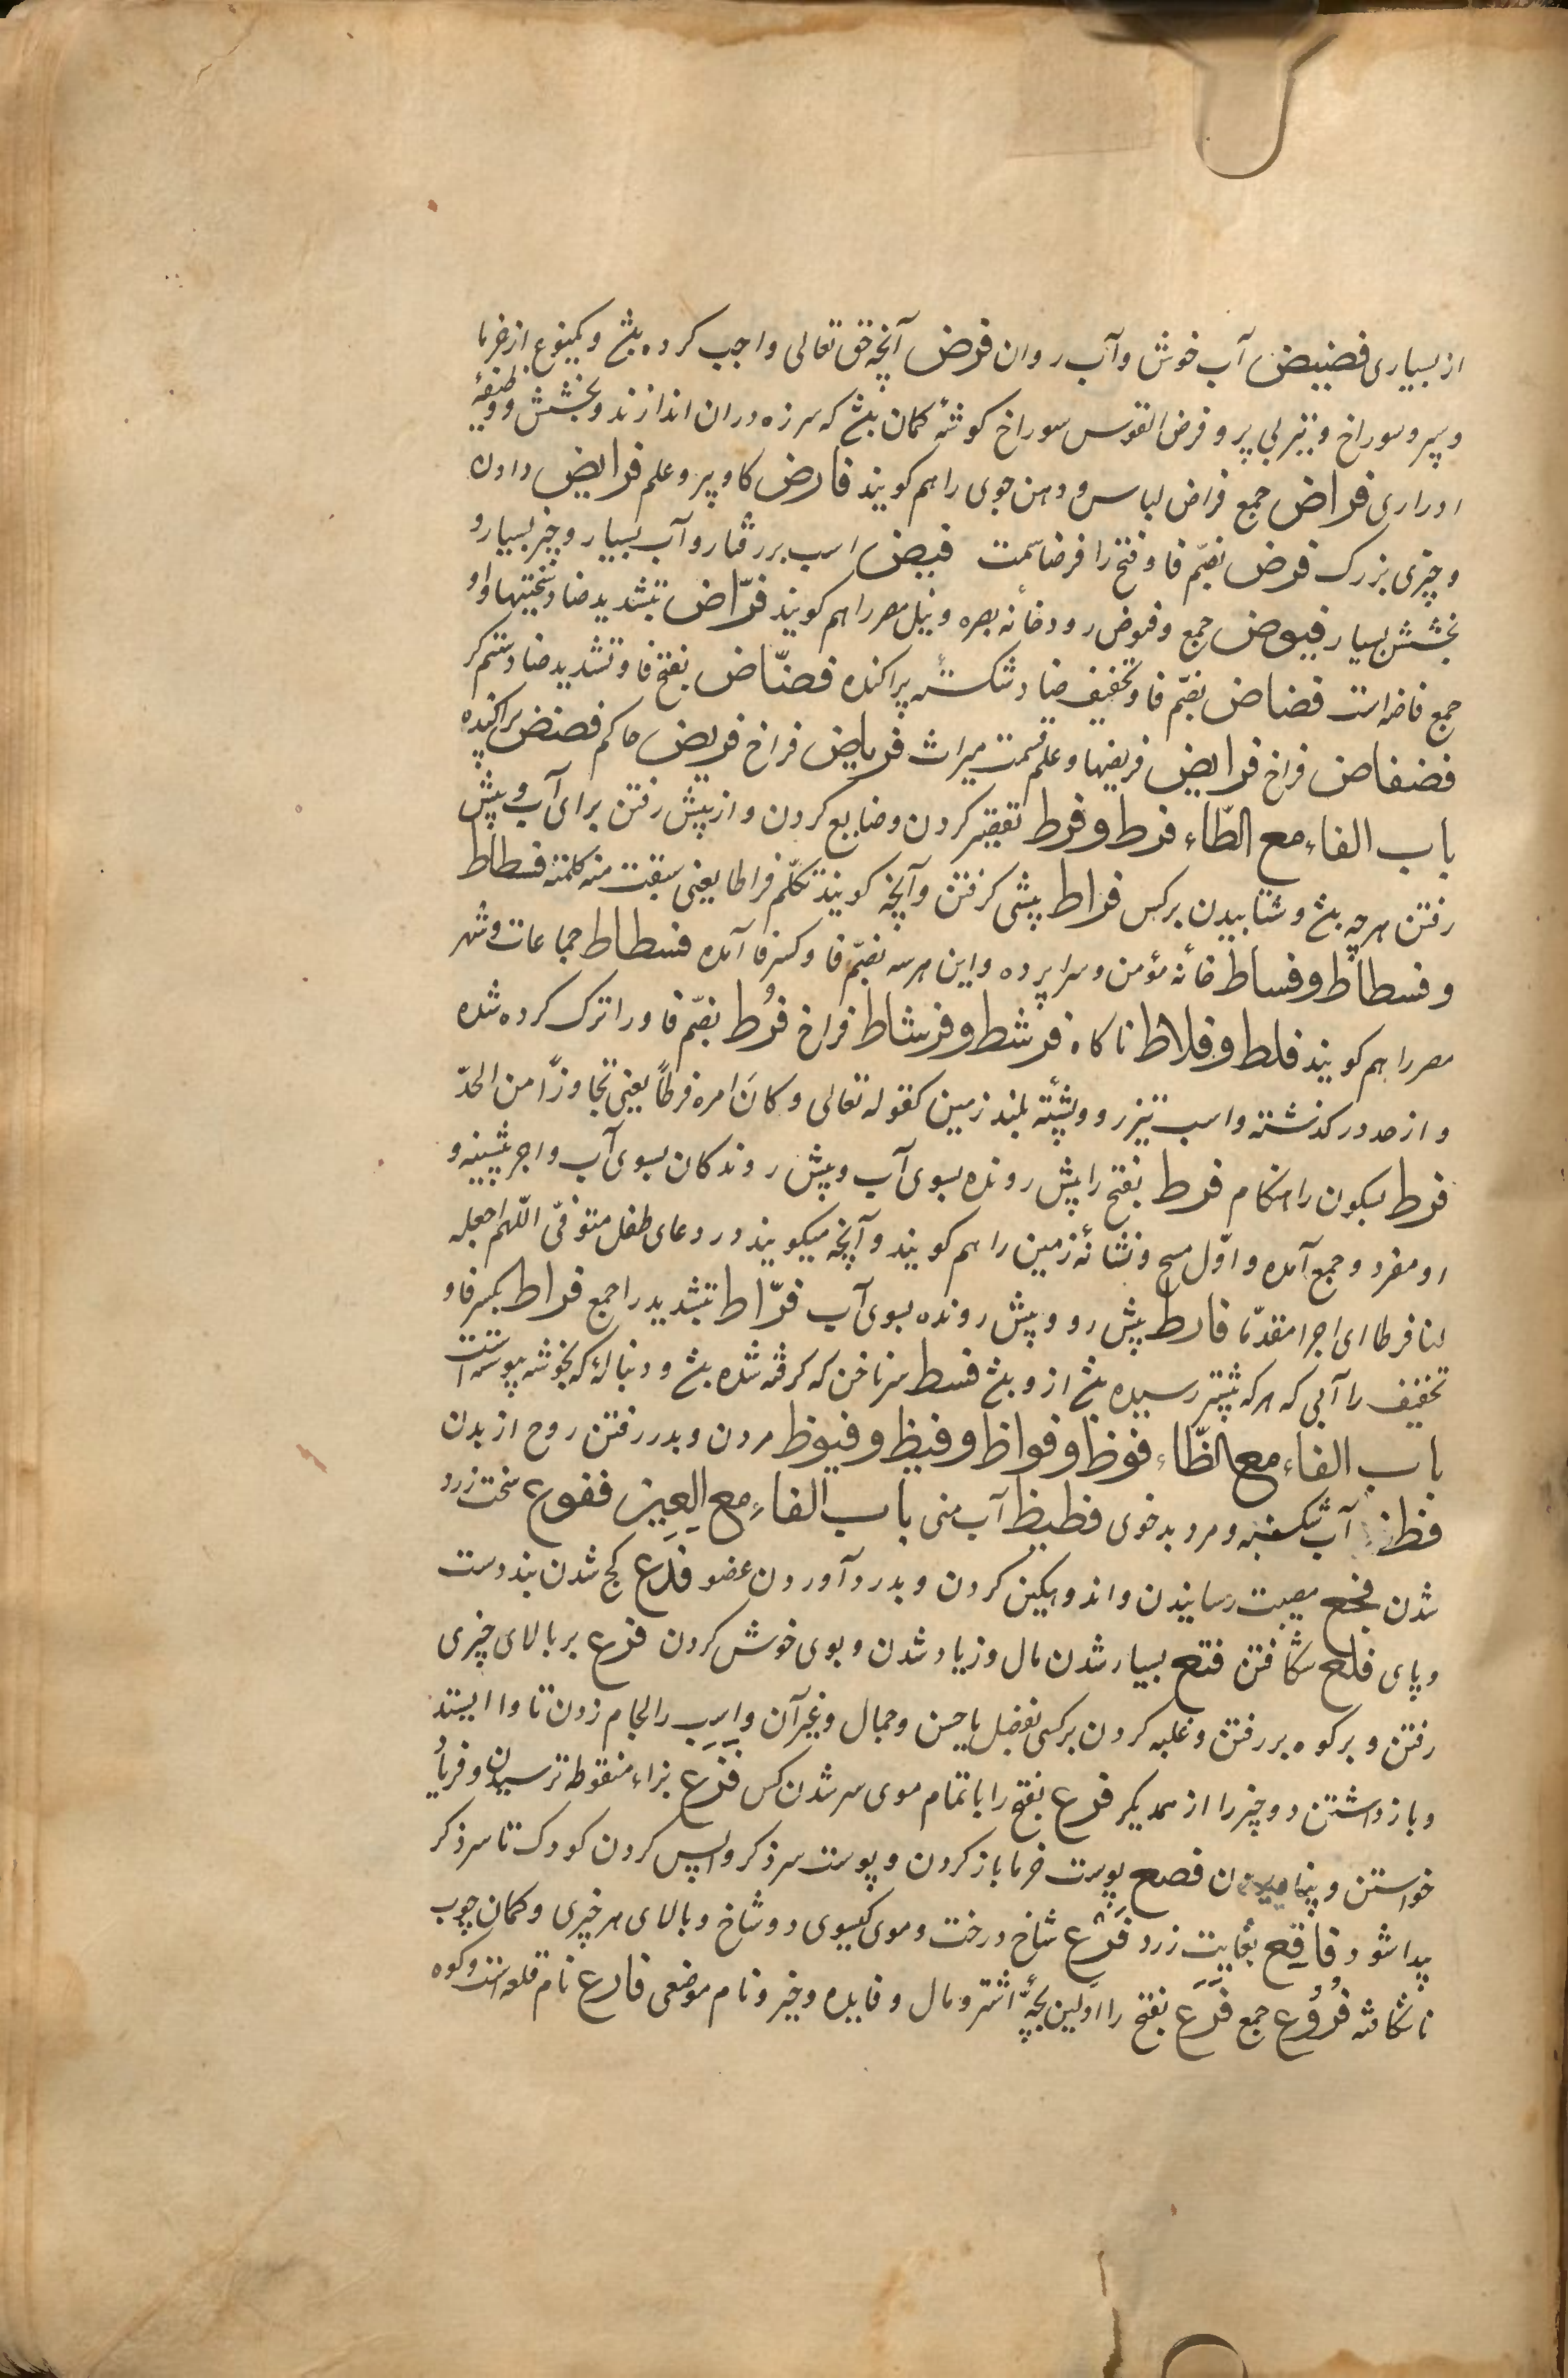 از بسیاری فضیض آب خوش و آب روان فرض آنچه حق تعالی واجب کرده بش و یکنوع از خرما
و سپر و سوراخ و تیر بی پر و فرض القوس سوراخ کوشهٔ کمان بش که سر زه در ان اندازند و بخشش و وظیفهٔ
ادراری فراض جمع فراض لباس و دهن جوی را هم کویند فارض کاو پیر و علم فرایض دادن
و چیزی بزرک فرض بضمّ فا و فتح را فرضاتست فیض اسب بررفتار و آب بسیار و چیز بسیار و
بخشش بسیار فیوض جمع و فیوض رودخانهٔ بصره و نیل مصر را هم کویند فرّاض بتشدید ضاد سختیها و او
جمع فاضه است فضاض بضمّ فا و تخفیف ضاد شکستهٔ پراکنده فضّاض بفتح فا و تشدید ضاد ستم کر
فضفاض فراخ فرایض فریضها و علم قسمت میراث فریاض فراخ فریض حاکم فضض پراکنده
باب الفاء مع الطّاء فرط و فرط تقصیر کردن و ضایع کردن و از پیش رفتن برای آب و پیش
رفتن هر چه بش و شتابیدن بر کس فراط پیشی کرفتن و آنچه کویند تکلّم فراطا یعنی سبقت منه کلمته فسطاط
و فسطاط و فساط خانهٔ مؤمن و سراپرده و این هر سه بضمّ فا و کسر فا آمده فسطاط جماعات و شهر
مصر را هم کویند فلط و فلاط ناکاه فرشط و فرشاط فراخ فُرُط بضمّ فا و را ترک کرده شده
و از حد در کذشته و اسب تیزرو و پشتهٔ بلند زمین کقوله تعالی و کانَ امره فرطاً یعنی تجاوزًا من الحدّ
فرط بسکون را هنکام فرط بفتح را پیش رونده بسوی آب و پیش روندکان بسوی آب و اجر پیشینه و
او مفرد و جمع آمده و اوّل صبح و نشانهٔ زمین را هم کویند و آنچه میکویند در دعای طفل متوفّی اللّهم اجعله
لنا فرطا ای اجرا مقدّما فارط پیش رو و پیش رونده بسوی آب فرّاط بتشدید را جمع فراط بکسر فا و
تخفیف را آبی که هر که پیشتر رسیده بش از و بش فسط سر ناخن که کرفته شده بش و دنبالهٔ که بخوشه پیوسته است
باب الفاء مع الظّاء فوظ و فواظ و فیظ و فیوظ مردن و بدر رفتن روح از بدن
فظ آب شکنبه و مرد بدخوی فظیظ آب منی باب الفاء مع العین فقوع سخت زرد
شدن فجع مصیبت رسانیدن و اندوهکین کردن و بدرد آوردن عضو فدع کج شدن بند دست
و پای فلع شکافتن فنع بسیار شدن مال و زیاد شدن و بوی خوش کردن فرع بر بالای چیزی
رفتن و بر کوه بر رفتن و غلبه کردن بر کسی بفضل یا حسن و جمال و غیر آن و اسب را لجام زدن تا وا ایستد
و بازداشتن دو چیز را از همدیکر فرع بفتح را با تمام موی سر شدن کس فزع بزاء منقوطه ترسیدن و فریاد
خواستن و پناهیدن فصع پوست خرما باز کردن و پوست سر ذکر واپس کردن کودک تا سر ذکر
پیدا شود فاقع بغایت زرد فرع شاخ درخت و موی کیسوی دو شاخ و بالای هر چیزی و کمان چوب
ناشکافته فُرُوع جمع فَرَع بفتح را اوّلین بچّهٔ اشتر و مال و فایده و خیر و نام موضعی فارع نام قلعه است و کوه